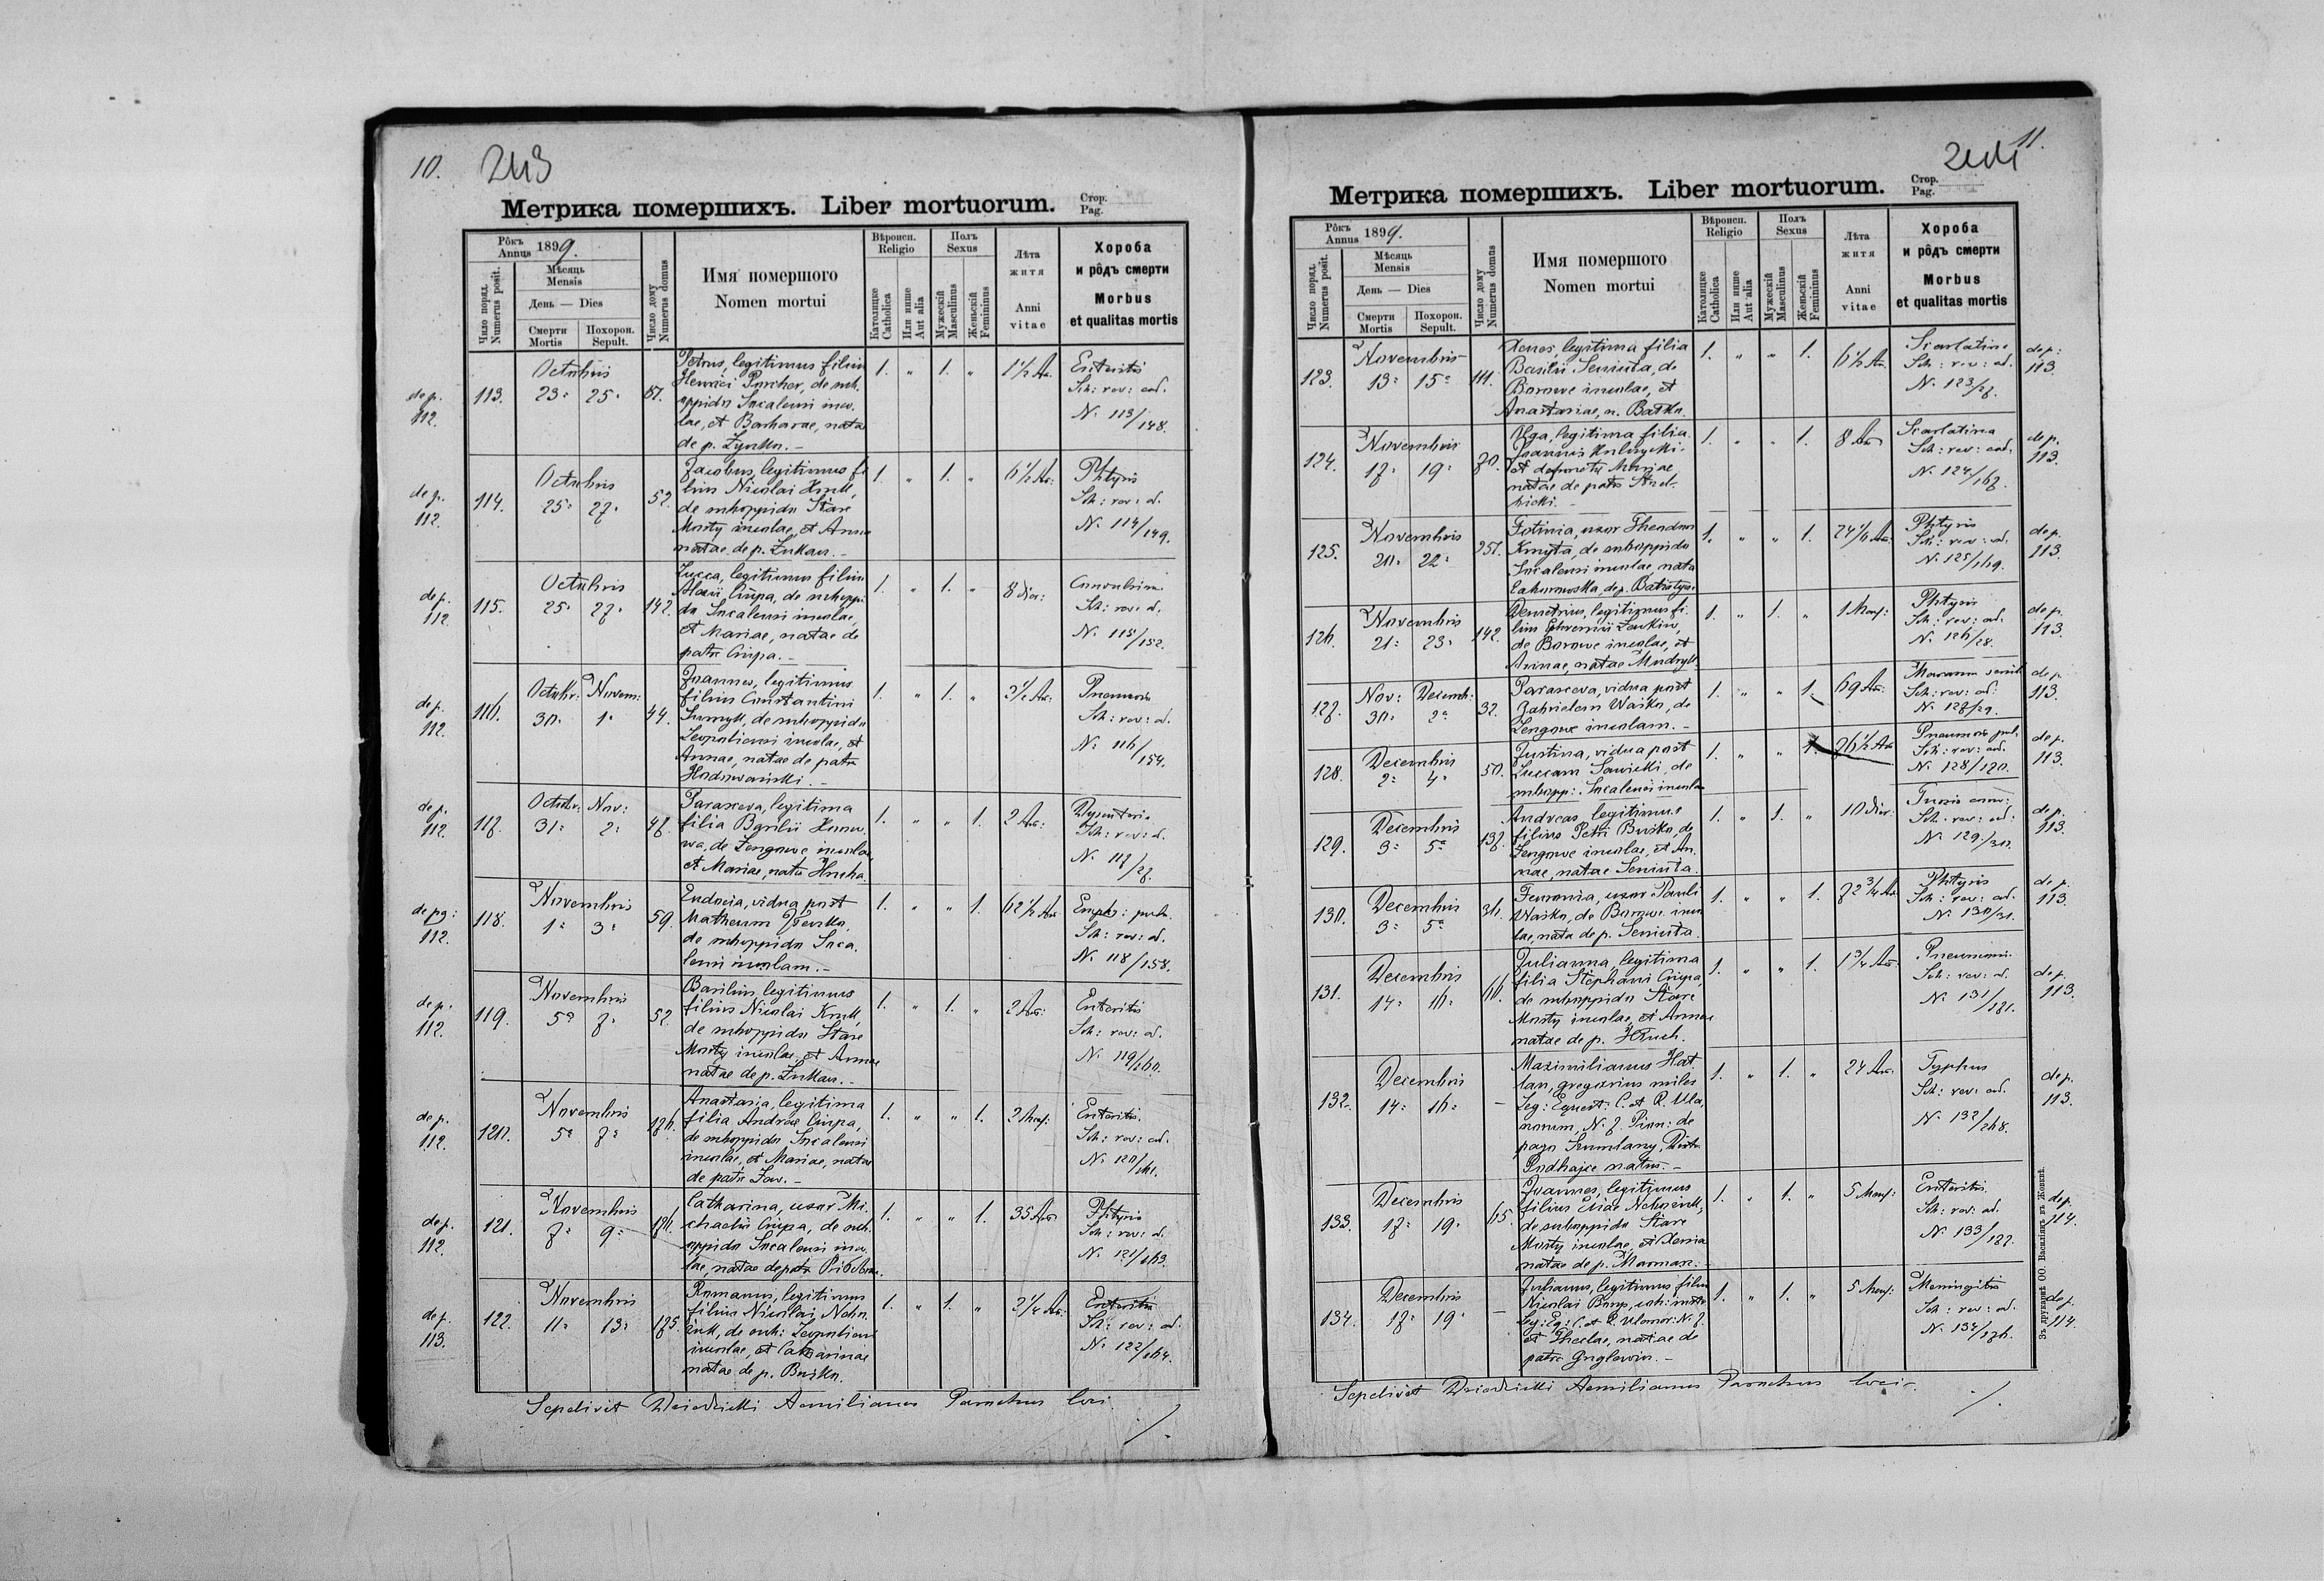 10.
243
Метрика помершихъ. Liber mortuorum.
Стор.
Pag.
Рôкъ
Annus 1899.
Мѣсяць
Mensis
День — Dies
Смерти
Mortis
Похорон.
Sepult.
Число поряд.
Numerus posit.
Число дому
Numerus domus
Имя помершого
Nomen mortui
Вѣроисп.
Religio
Католицке
Catholica
Или инше
Aut alia
Полъ
Sexus
Мужескій
Masculinus
Женьскій
Femininus
Лѣта
житя
Anni
vitae
Хороба
и рôдъ смерти
Morbus
et qualitas mortis
de p.
112.
113.
Octobris
23. 25.
67.
Petrus, legitimus filius
Henrici Porcher, de sub.
oppido Socalensi inco.
lae, et Barbarae, natae
de p. Zynko. -
1. " 1. "
1½ An.
Enteritis
Sch: rev: ad.
N. 113/148.
de p.
112.
114.
Octobris
25. 27.
52.
Jacobus, legitimus fi
lius Nicolai Kruk,
de suboppido Stare
Mosty incolae, et Annae
natae de p. Zukow. -
1. " 1. "
6½ An:
Phtysis
Sch: rev: ad.
N. 114/149.
de p.
112
115.
Octobris
25. 27.
142.
Lucca, legitimus filius
Alexii Ciupa, de suboppi
do Socalensi incolae,
et Mariae, natae de
patre Ciupa. -
1. " 1. "
8 dier:
Convulsion.
Sch: rev: ad.
N. 115/152.
de p.
112.
116.
Octobr: Novem:
30. 1.
44.
Joannes, legitimus
filius Constantini
de suboppido
Leopoliensi incolae, et
Annae, natae de patre
1. " 1. "
Sch: rev: ad.
N. 116/154.
de p.
112.
117.
Octobr: Nov:
31. 2.
47.
Parasceva, legitima
filia Basilii
de Zengowe incolae,
et Mariae, natae Hucha.
1. " " 1.
2 An:
Dysenteria
Sch: rev: ad.
N. 117/27.
de pg:
112.
118.
Novembris
1. 3.
59.
Eudocia, vidua post
Matheum
de suboppido Soca.
lensi incolam. -
1. " " 1.
62½ An
Emph: pulm.
Sch: rev: ad.
N. 118/158.
de p.
112.
119.
Novembris
5. 7.
52.
Basilius, legitimus
filius Nicolai Kruk,
de suboppido Stare
Mosty incolae, et Annae
natae de p. Zukow. -
1. " 1. "
2 An:
Enteritis
Sch: rev: ad.
N. 119/160.
de p.
112.
120.
Novembris
5. 7.
176.
Anastasia, legitima
filia Andreae Ciupa,
de suboppido Socalensi
incolae, et Mariae, natae
de patre Zaw. -
1. " " 1.
2 Mens:
Enteritis.
Sch: rev: ad.
N. 120/161.
de p.
112.
121.
Novembris
7. 9.
176.
Catharina, uxor Mi.
chaelis Ciupa, de sub.
oppido Socalensi inco.
lae, natae de patre
1. " " 1.
35 An
Phtysis
Sch: rev: ad.
N. 121/163.
de p.
113.
122.
Novembris
11. 13.
175.
Romanus, legitimus
filius Nicolai
de sub: Leopoliensi
incolae, et Catharinae
natae de p. Busko.
1. " 1. "
Enteritis
Sch: rev: ad.
N. 122/164.
Sepelivit Dziedzicki Aemilianus Parochus loci.
11.
244
Метрика помершихъ. Liber mortuorum.
Стор.
Pag.
Рôкъ
Annus 1899.
Мѣсяць
Mensis
День — Dies
Смерти
Mortis
Похорон.
Sepult.
Число поряд.
Numerus posit.
Число дому
Numerus domus
Имя помершого
Nomen mortui
Вѣроисп.
Religio
Католицке
Catholica
Или инше
Aut alia
Полъ
Sexus
Мужескій
Masculinus
Женьскій
Femininus
Лѣта
житя
Anni
vitae
Хороба
и рôдъ смерти
Morbus
et qualitas mortis
123.
Novembris
13. 15.
111.
Xenes, legitima filia
Basilii Seniuta, de
Borowe incolae, et
Anastasiae, n. Batko.
1. " " 1.
6½ An.
Scarlatina
Sch: rev: ad.
N. 123/27.
de p:
113.
124.
Novembris
17. 19.
70.
Olga, legitima filia
Joannis
et defunctae Mariae
natae de patre
1. " " 1.
8 An
Scarlatina
Sch: rev: ad.
N. 124/167.
de p.
113.
125.
Novembris
20. 22.
251.
Fotinia, uxor Theodori
Kmyta, de suboppido
Socalensi incolae, nata
1. " " 1.
Phtysis
Sch: rev: ad.
N. 125/169.
de p.
113.
126.
Novembris
21. 23.
142.
Demetrius, legitimus fi.
lius Ephremii
de Borowe incolae, et
Annae, natae Mudryk
1. " 1. "
1 Mens:
Phtysis
Sch: rev: ad.
N. 126/28.
de p.
113.
127.
Nov: Decemb:
30. 2.
32.
Parasceva, vidua post
Gabrielem Wasko, de
Zengowe incolam. -
1. " " 1.
69 An:
Marasm senil
Sch: rev: ad.
N. 127/29.
de p.
113.
128.
Decembris
2. 4.
50.
Justina, vidua post
Luccam Sawicki, de
subopp: Socalensi incola
1. " " 1.
76½ An
Sch: rev: ad.
N. 128/170.
de p.
113.
129.
Decembris
3. 5.
137.
Andreas legitimus
filius Petri Busko, de
Zengowe incolae, et An.
nae, natae Seniuta.
1. " 1. "
10 dier:
Sch: rev: ad.
N. 129/30.
de p.
113.
130.
Decembris
3. 5.
36.
uxor Pauli
Wasko, de Borowe inco
lae, nata de p. Seniuta.
1. " " 1.
72¾ An
Phtysis
Sch: rev: ad.
N. 130/31.
de p.
113.
131.
Decembris
14. 16.
66.
Julianna, legitima
filia Stephani Ciupa,
de suboppido Stare
Mosty incolae, et Annae
natae de p. Hruch.
1. " " 1.
1¾ An.
Pneumoni.
Sch: rev: ad.
N. 131/181.
de p.
113.
132.
Decembris
14. 16.
—
Maximilianus Hat
lan, gregorius miles
Leg: Equest: C. et R. Ula,
norum, N. 7. Pion: de
pago Szumlany, Distr.
Podhajce natus. -
1. " 1. "
24 An.
Typhus
Sch: rev: ad.
N. 132/268.
de p.
113.
133.
Decembris
17. 19.
65.
Joannes, legitimus
filius Eliae
de suboppido Stare
Mosty incolae, et Xenia
natae de p. Marman. -
1. " 1. "
5 Mens:
Enteritis.
Sch: rev: ad.
N. 133/187.
de p.
114.
134.
Decembris
17. 19.
—
Julianus, legitimus filius
Nicolai
Leg: Eq: C. et R. Ulanor: N. 7.
et Theclae, natae de
patre
1. " 1. "
5 Mens:
Meningitis
Sch: rev: ad.
N. 134/176.
de p.
114.
Sepelivit Dziedzicki Aemilianus Parochus loci.
Зъ друкарнѣ ОО. Василіянъ въ Жовквѣ.